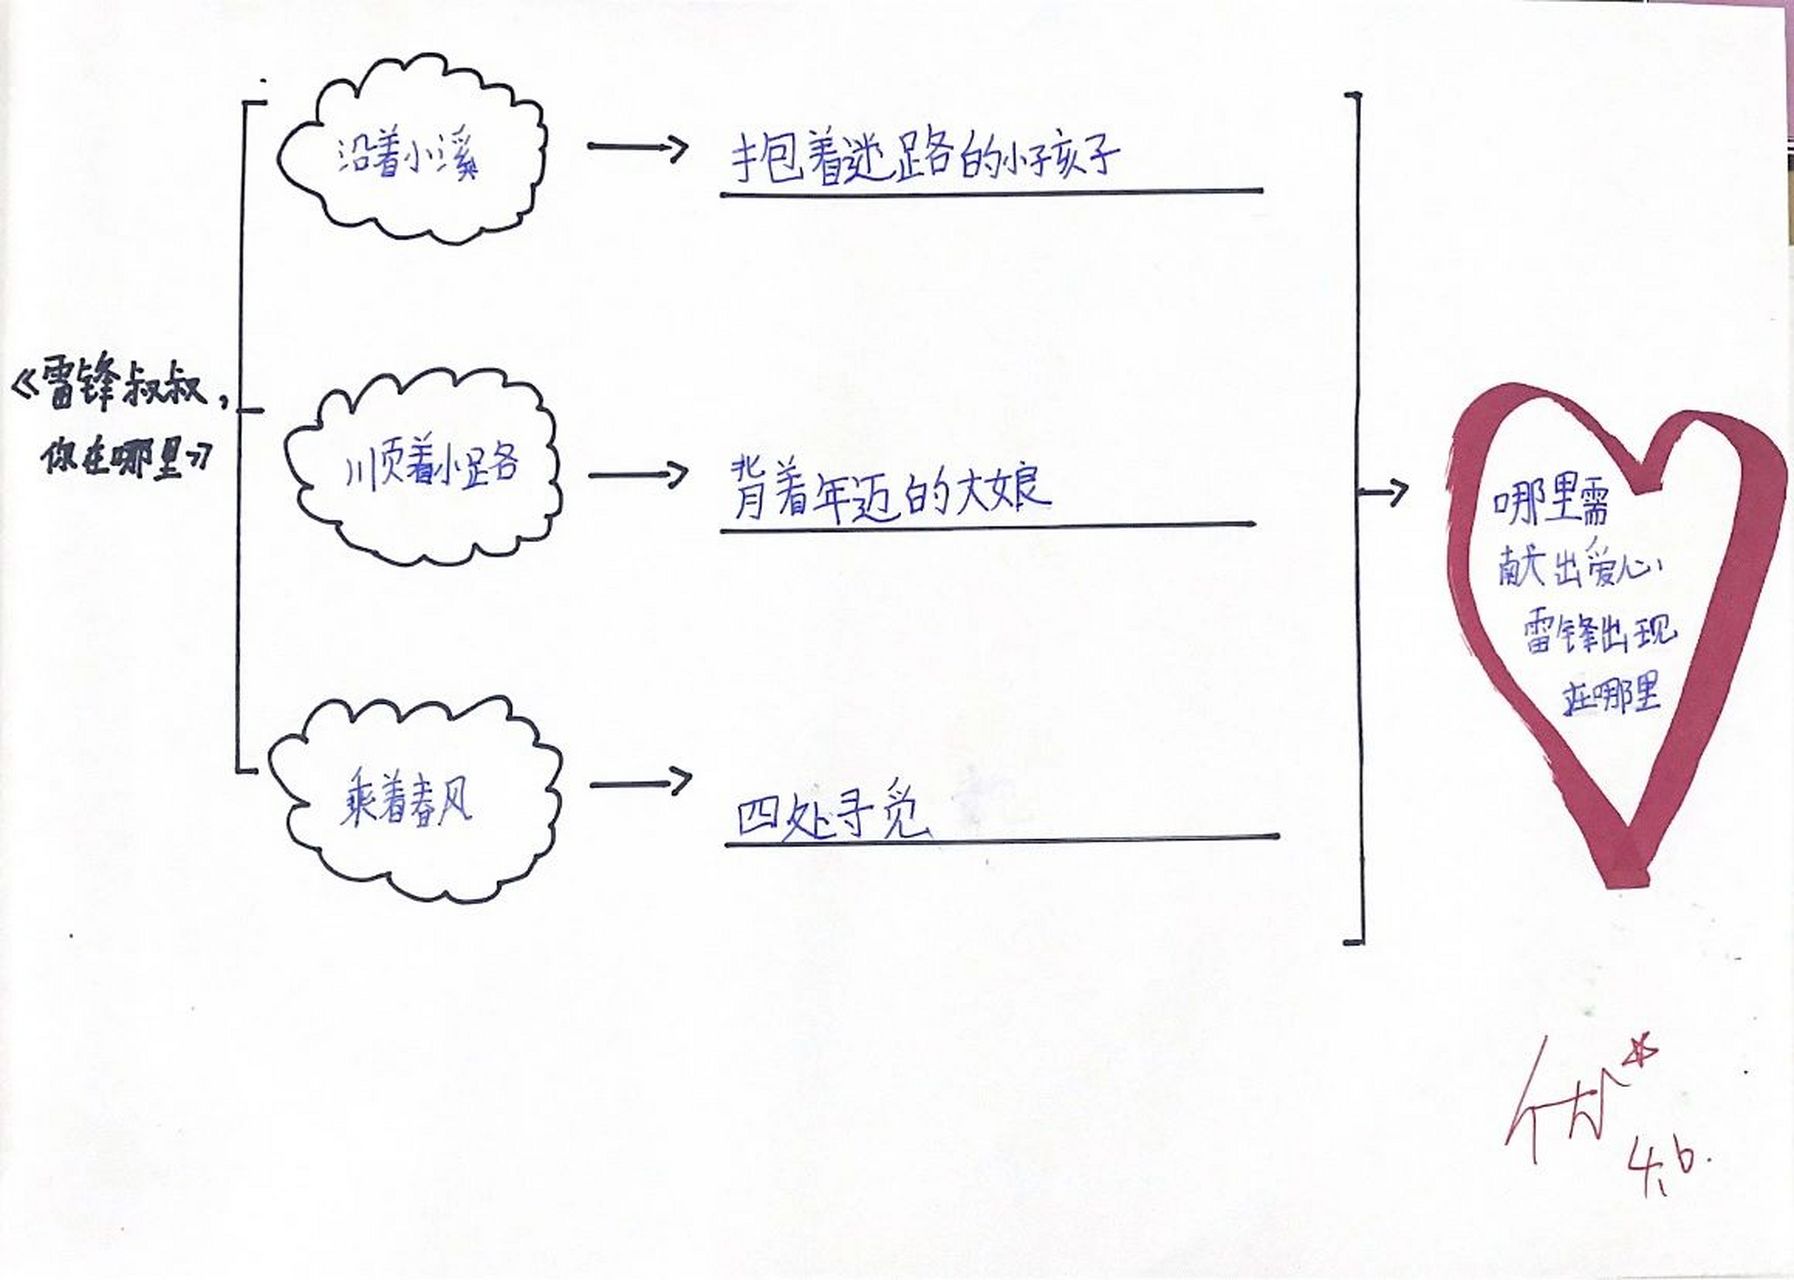 《雷锋叔叔，
你在哪里》
沿着小溪
抱着迷路的小孩子
顺着小路
背着年迈的大娘
乘着春风
四处寻觅
哪里需
献出爱心，
雷锋出现
在哪里
优
4.6.